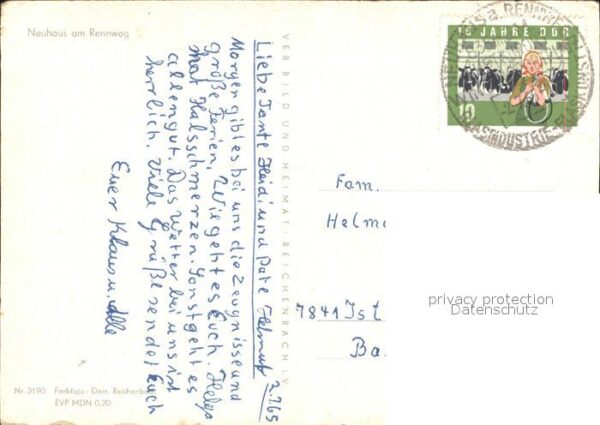 Neuhaus am Rennweg
Liebe Tante Heidi und Pate Helmut
2.7.65
Morgen gibt es bei uns die Zeugnisse und
große Ferien. Wie geht es Euch. Helga
hat Halsschmerzen. Sonst geht es
allen gut. Das Wetter bei uns ist
herrlich. Viele Grüße sendet Euch
Euer Klaus u. Alle
VEB BILD UND HEIMAT · REICHENBACH I. V.
15 JAHRE DDR
10
Fam.
Helm
7841 Ist
Ba
privacy protection
Datenschutz
Nr. 3190 Farbfoto: Darr, Reichenb
EVP MDN 0,20